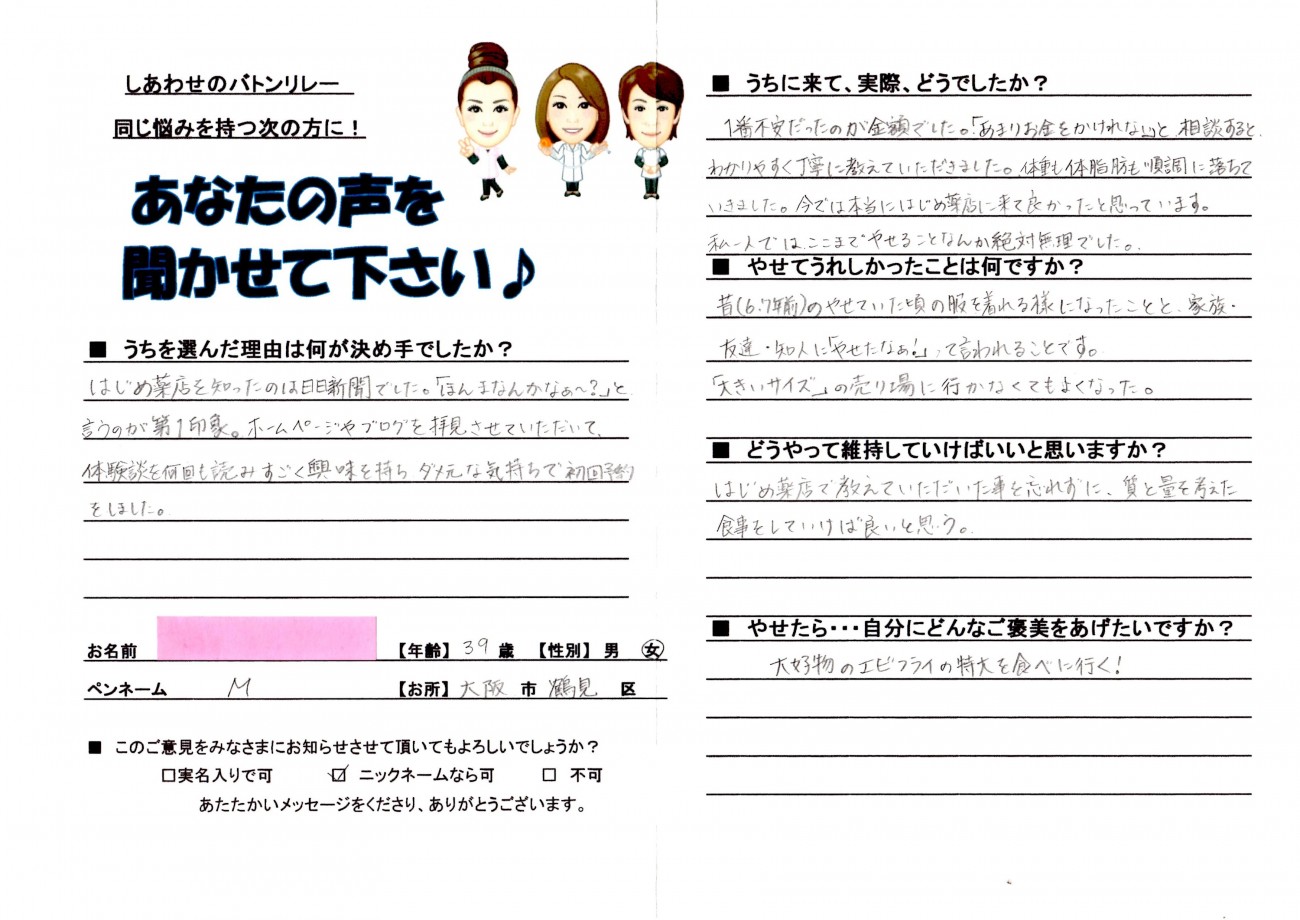 しあわせのバトンリレー
同じ悩みを持つ次の方に！
あなたの声を
聞かせて下さい♪
■ うちを選んだ理由は何が決め手でしたか？
はじめ薬店を知ったのは日日新聞でした。「ほんまなんかなぁ〜？」と
言うのが第1印象。ホームページやブログを拝見させていただいて、
体験談を何回も読みすごく興味を持ち ダメ元な気持ちで初回予約
をしました。
お名前 【年齢】 39 歳 【性別】 男 女
ペンネーム M 【お所】 大阪 市 鶴見 区
■ このご意見をみなさまにお知らせさせて頂いてもよろしいでしょうか？
□実名入りで可 ☑ ニックネームなら可 □ 不可
あたたかいメッセージをくださり、ありがとうございます。
■ うちに来て、実際、どうでしたか？
1番不安だったのが金額でした。「あまりお金をかけれない」と 相談すると、
わかりやすく丁寧に教えていただきました。体重も体脂肪も順調に落ちて
いきました。今では本当にはじめ薬店に来て良かったと思っています。
私一人では、ここまでやせることなんか絶対無理でした。
■ やせてうれしかったことは何ですか？
昔(6.7年前)のやせていた頃の服を着れる様になったことと、家族・
友達・知人に「やせたなぁ！」って言われることです。
「大きいサイズ」の売り場に行かなくてもよくなった。
■ どうやって維持していけばいいと思いますか？
はじめ薬店で教えていただいた事を忘れずに、質と量を考えた
食事をしていけば良いと思う。
■ やせたら・・・自分にどんなご褒美をあげたいですか？
大好物のエビフライの特大を食べに行く！